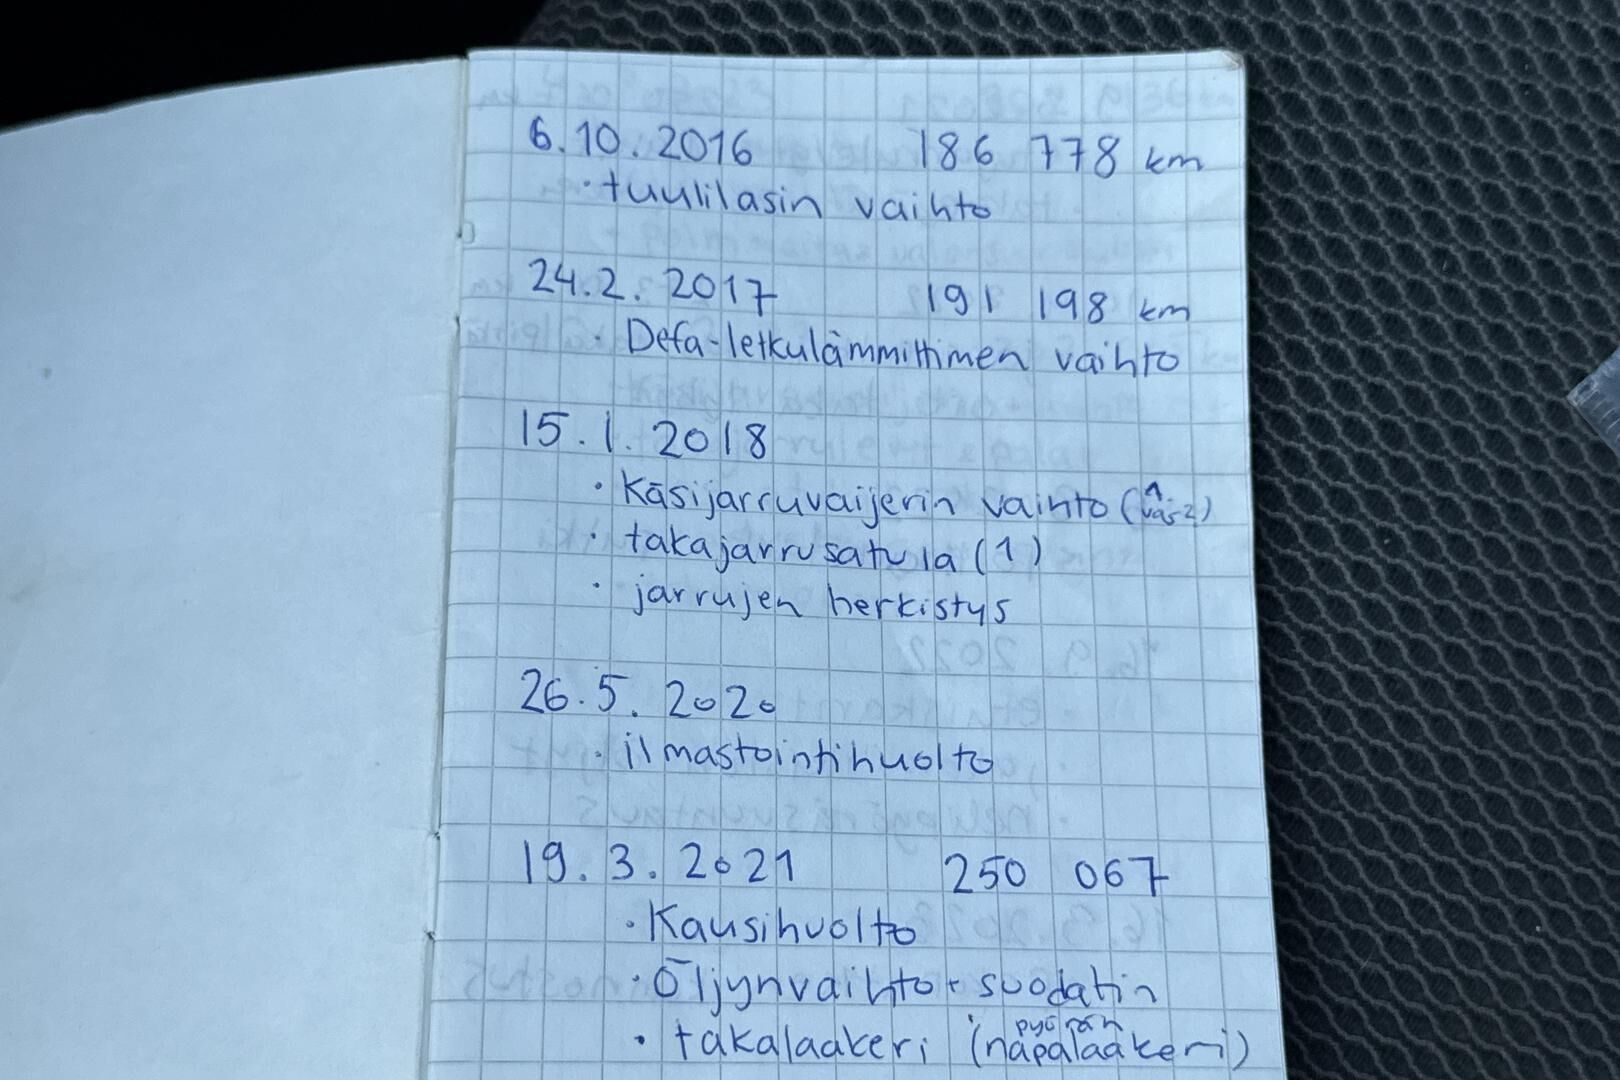 6.10.2016 186 778 km
· tuulilasin vaihto
24.2.2017 191 198 km
· Defa-letkulämmittimen vaihto
15.1.2018
· Käsijarruvaijerin vaihto (1
· takajarrusatula (1)
· jarrujen herkistys
26.5.2020
· ilmastointihuolto
19.3.2021 250 067
· Kausihuolto
· Öljynvaihto + suodatin
· takalaakeri (pyörän napalaakeri)